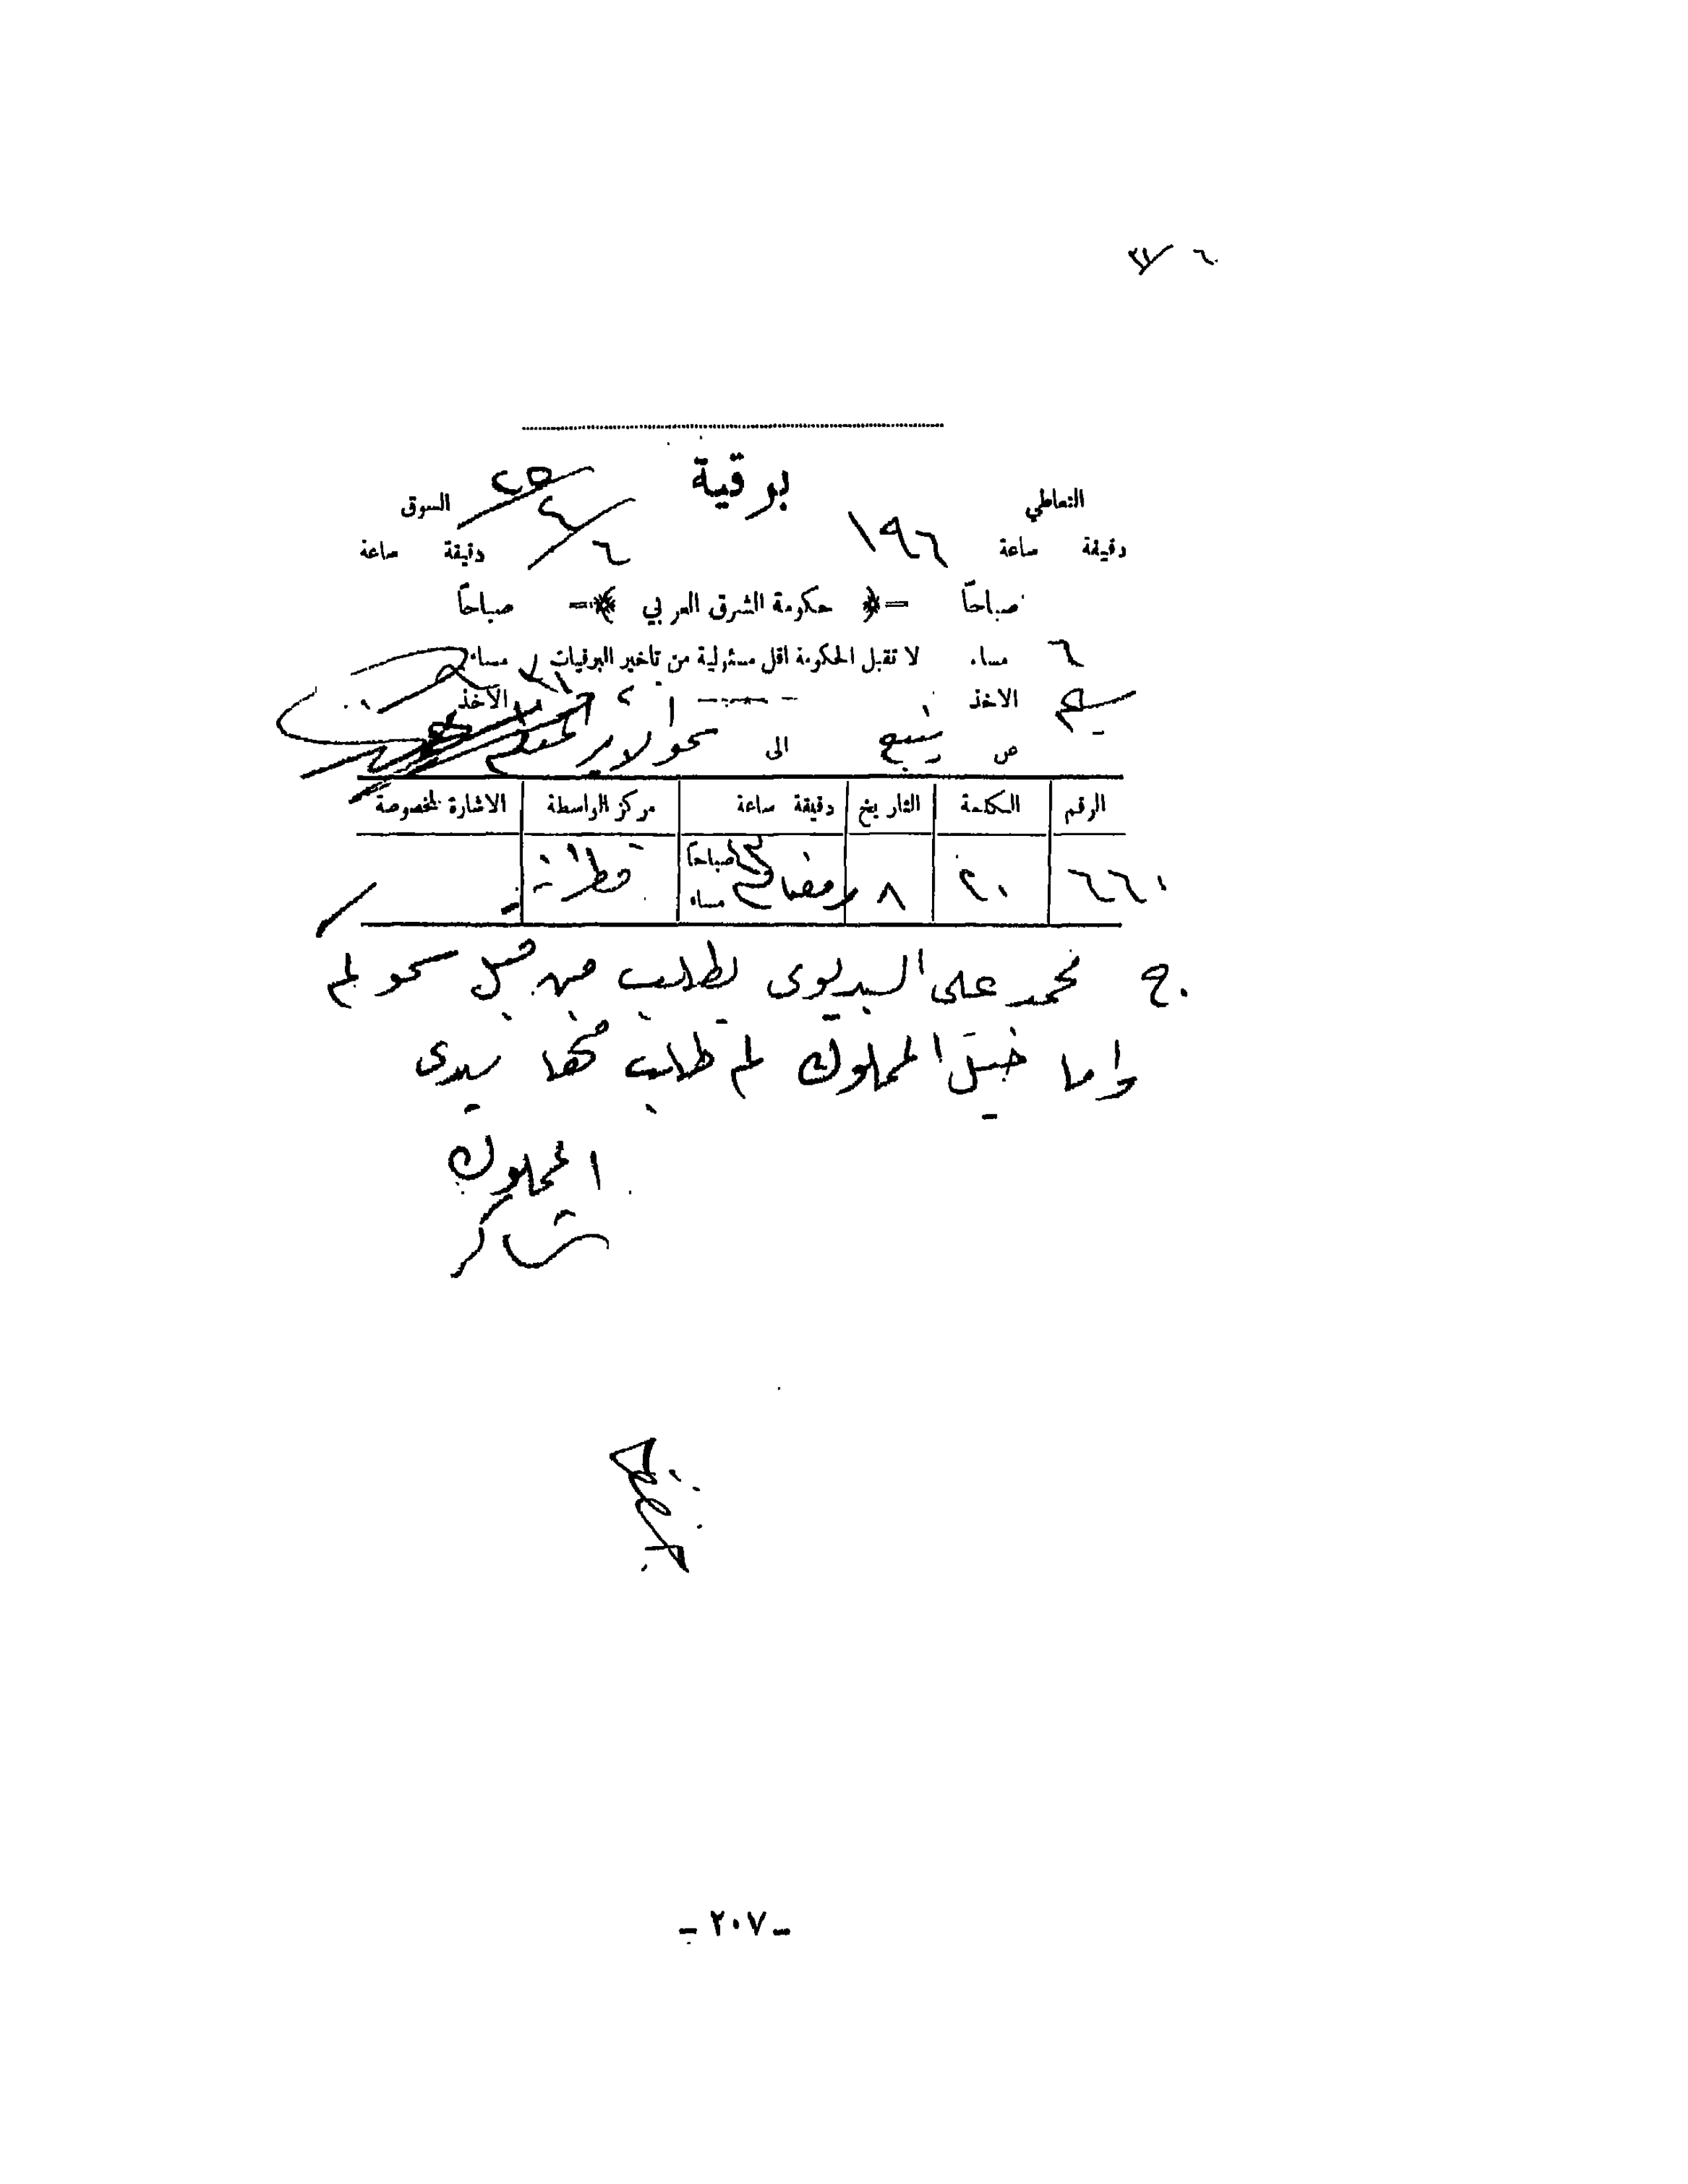 ٦ ٣١
برقية
٢٥
٤
٦
التعاطي
السوق
١٩٦
دقيقة ساعة
دقيقة ساعة
صباحاً
حكومة الشرق العربي
صباحاً
٦ مساء
لا تقبل الحكومة اقل مسئولية من تأخير البرقيات
مساء
الاخذ
الاخذ
ص ينبع الى سمو الامير المعظم
الرقم الكلمة التاريخ دقيقة ساعة مركز الواسطة الاشارة المخصوصة
٦٦٠ ٢٠ ٨ رمضان صباحاً مساء قطرانة
ج. محمد على البديوى يطلب من قبل سمو لم
واما خيل المملوك لم طلب منها سيدى
المملوك
شاكر
- ٢٠٧ -